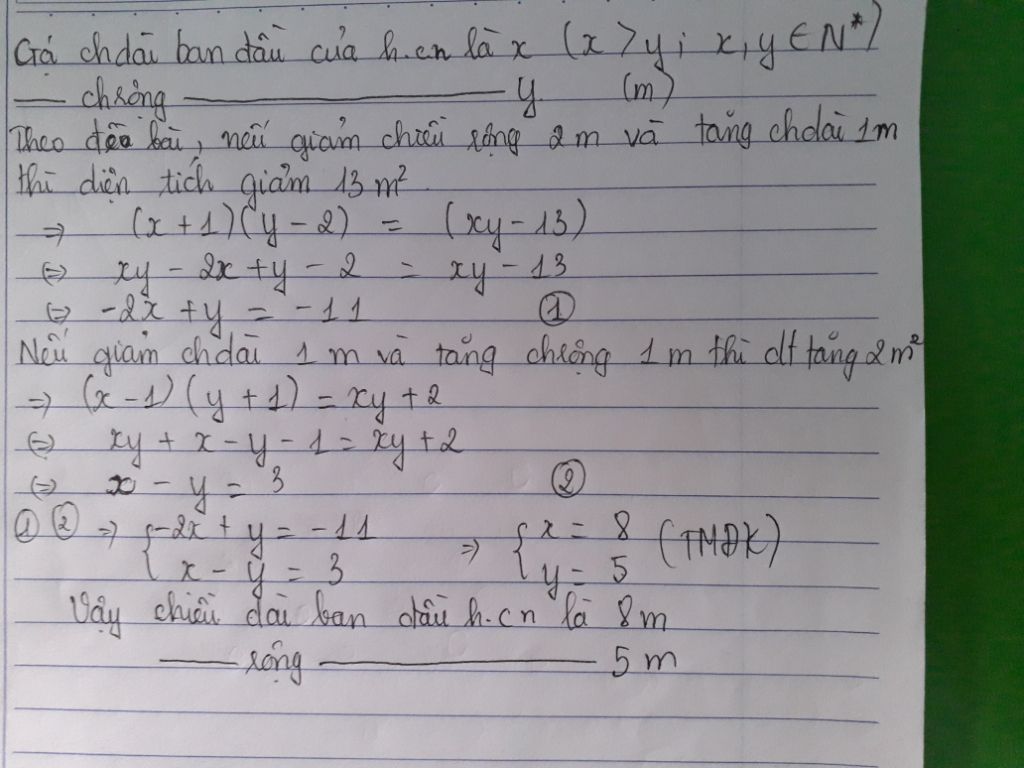 Gọi chdài ban đầu của h.cn là x (x > y; x, y ∈ N*)
— chrộng ———— y (m)
Theo đề bài, nếu giảm chiều rộng 2m và tăng chdài 1m
thì diện tích giảm 13 m²
⇒ (x + 1)(y - 2) = (xy - 13)
⇔ xy - 2x + y - 2 = xy - 13
⇔ -2x + y = -11 ①
Nếu giảm chdài 1m và tăng chrộng 1m thì dt tăng 2m²
⇒ (x - 1)(y + 1) = xy + 2
⇔ xy + x - y - 1 = xy + 2
⇔ x - y = 3 ②
① ② ⇒ { -2x + y = -11 ⇒ { x = 8 (TMĐK)
x - y = 3 y = 5
Vậy chiều dài ban đầu h.cn là 8m
— rộng ———— 5 m